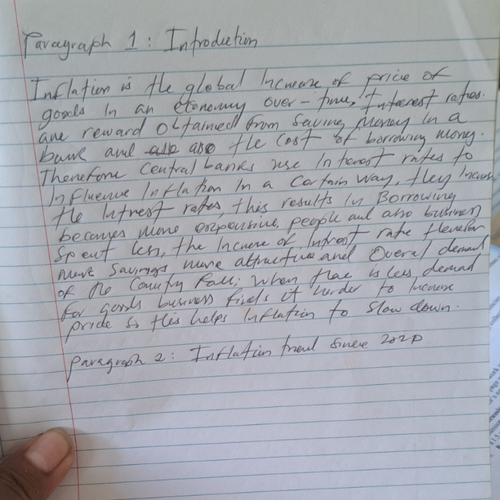 Paragraph 1: Introduction
Inflation is the global Increase of price of
goods In an economy over-time, Interest rates.
are reward obtained from Saving Money In a
bank and also the Cost of borrowing money.
Therefore Central banks use Interest rates to
Influence Inflation In a Certain way, they Increase
the Intrest rates, this results In Borrowing
becomes more expensive, people and also business
Spent less, the Increase of Intrest rate
more Savings more attractive and Overall demand
of the Country Falls; When there is less, demand
for goods business finds it harder to Increase
price so this helps Inflation to Slow down.
Paragraph 2: Inflation trend Since 2020